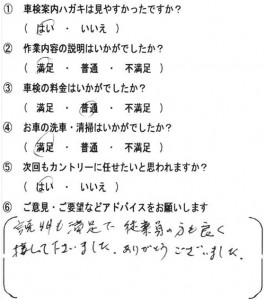 ① 車検案内ハガキは見やすかったですか?
( はい ・ いいえ )
② 作業内容の説明はいかがでしたか?
( 満足 ・ 普通 ・ 不満足 )
③ 車検の料金はいかがでしたか?
( 満足 ・ 普通 ・ 不満足 )
④ お車の洗車・清掃はいかがでしたか?
( 満足 ・ 普通 ・ 不満足 )
⑤ 次回もカントリーに任せたいと思われますか?
( はい ・ いいえ )
⑥ ご意見・ご要望などアドバイスをお願いします
説明も満足で 従業員の方も良く
接して下さいました。ありがとうございました。